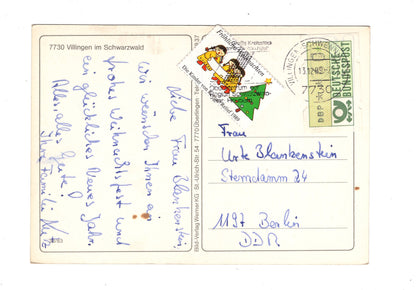 7730 Villingen im Schwarzwald
Liebe Frau Blankenstein,
wir wünschen Ihnen ein
frohes Weihnachtsfest und
ein glückliches Neues Jahr.
Alles, alles Gute!
Ihre Familie
Bild-Verlag Werner KG St.-Ulrich-Str. 54 7770 Überlingen
VILLINGEN-SCHWENN
7730
DEUTSCHE
BUNDESPOST
DBP
Frau
Urte Blankenstein
Sterndamm 24
1197 Berlin
DDR